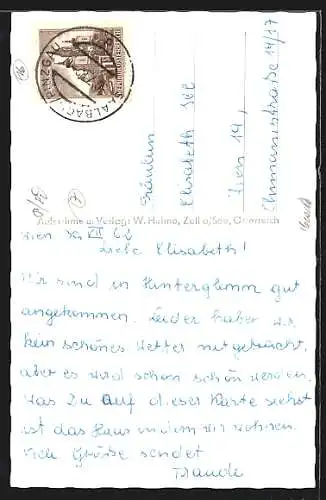 SAALBACH, PINZGAU
Fräulein
Elisabeth
Wien 19,
14/17
Aufnahme u. Verlag: W. Helmo, Zell a/See, Österreich
VII 62
Liebe Elisabeth!
Wir sind in Hinterglemm gut
angekommen. Leider haben wir
kein schönes Wetter mitgebracht,
aber es wird schon schön werden.
Was Du auf dieser Karte siehst
ist das Haus in dem wir wohnen.
Viele Grüße sendet
Traude